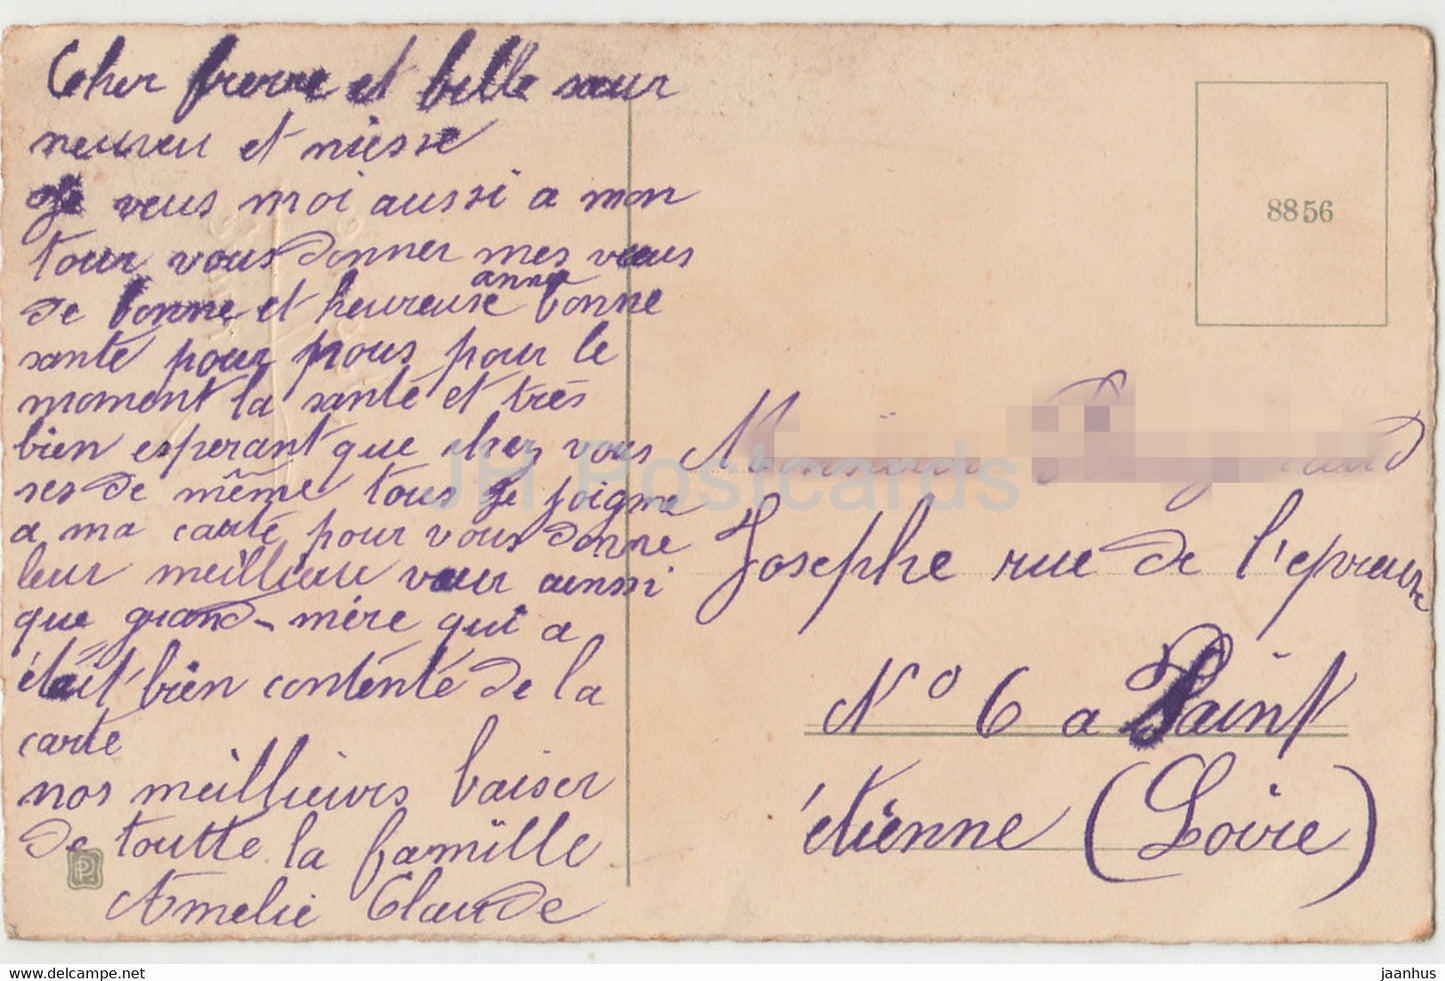 Cher frerre et belle sœur
neuveu et niesse
Je veus moi aussi a mon
tour vous donner mes vœus
de bonne et heureuse anne bonne
santé pour nous pour le
moment la santé et très
bien esperant que chez vous
ses de même tous se joigne
a ma carte pour vous donne
leur meilliere vœur ainssi
que grand-mère qui a
était bien contente de la
carte
nos meillieires baiser
de toutte la famille
Amelie Claude
8856
Monsieur
Josephe rue de l'epreuve
N° 6 a Saint
étienne (Loire)
JH Postcards
jaanhus
delcampe.net